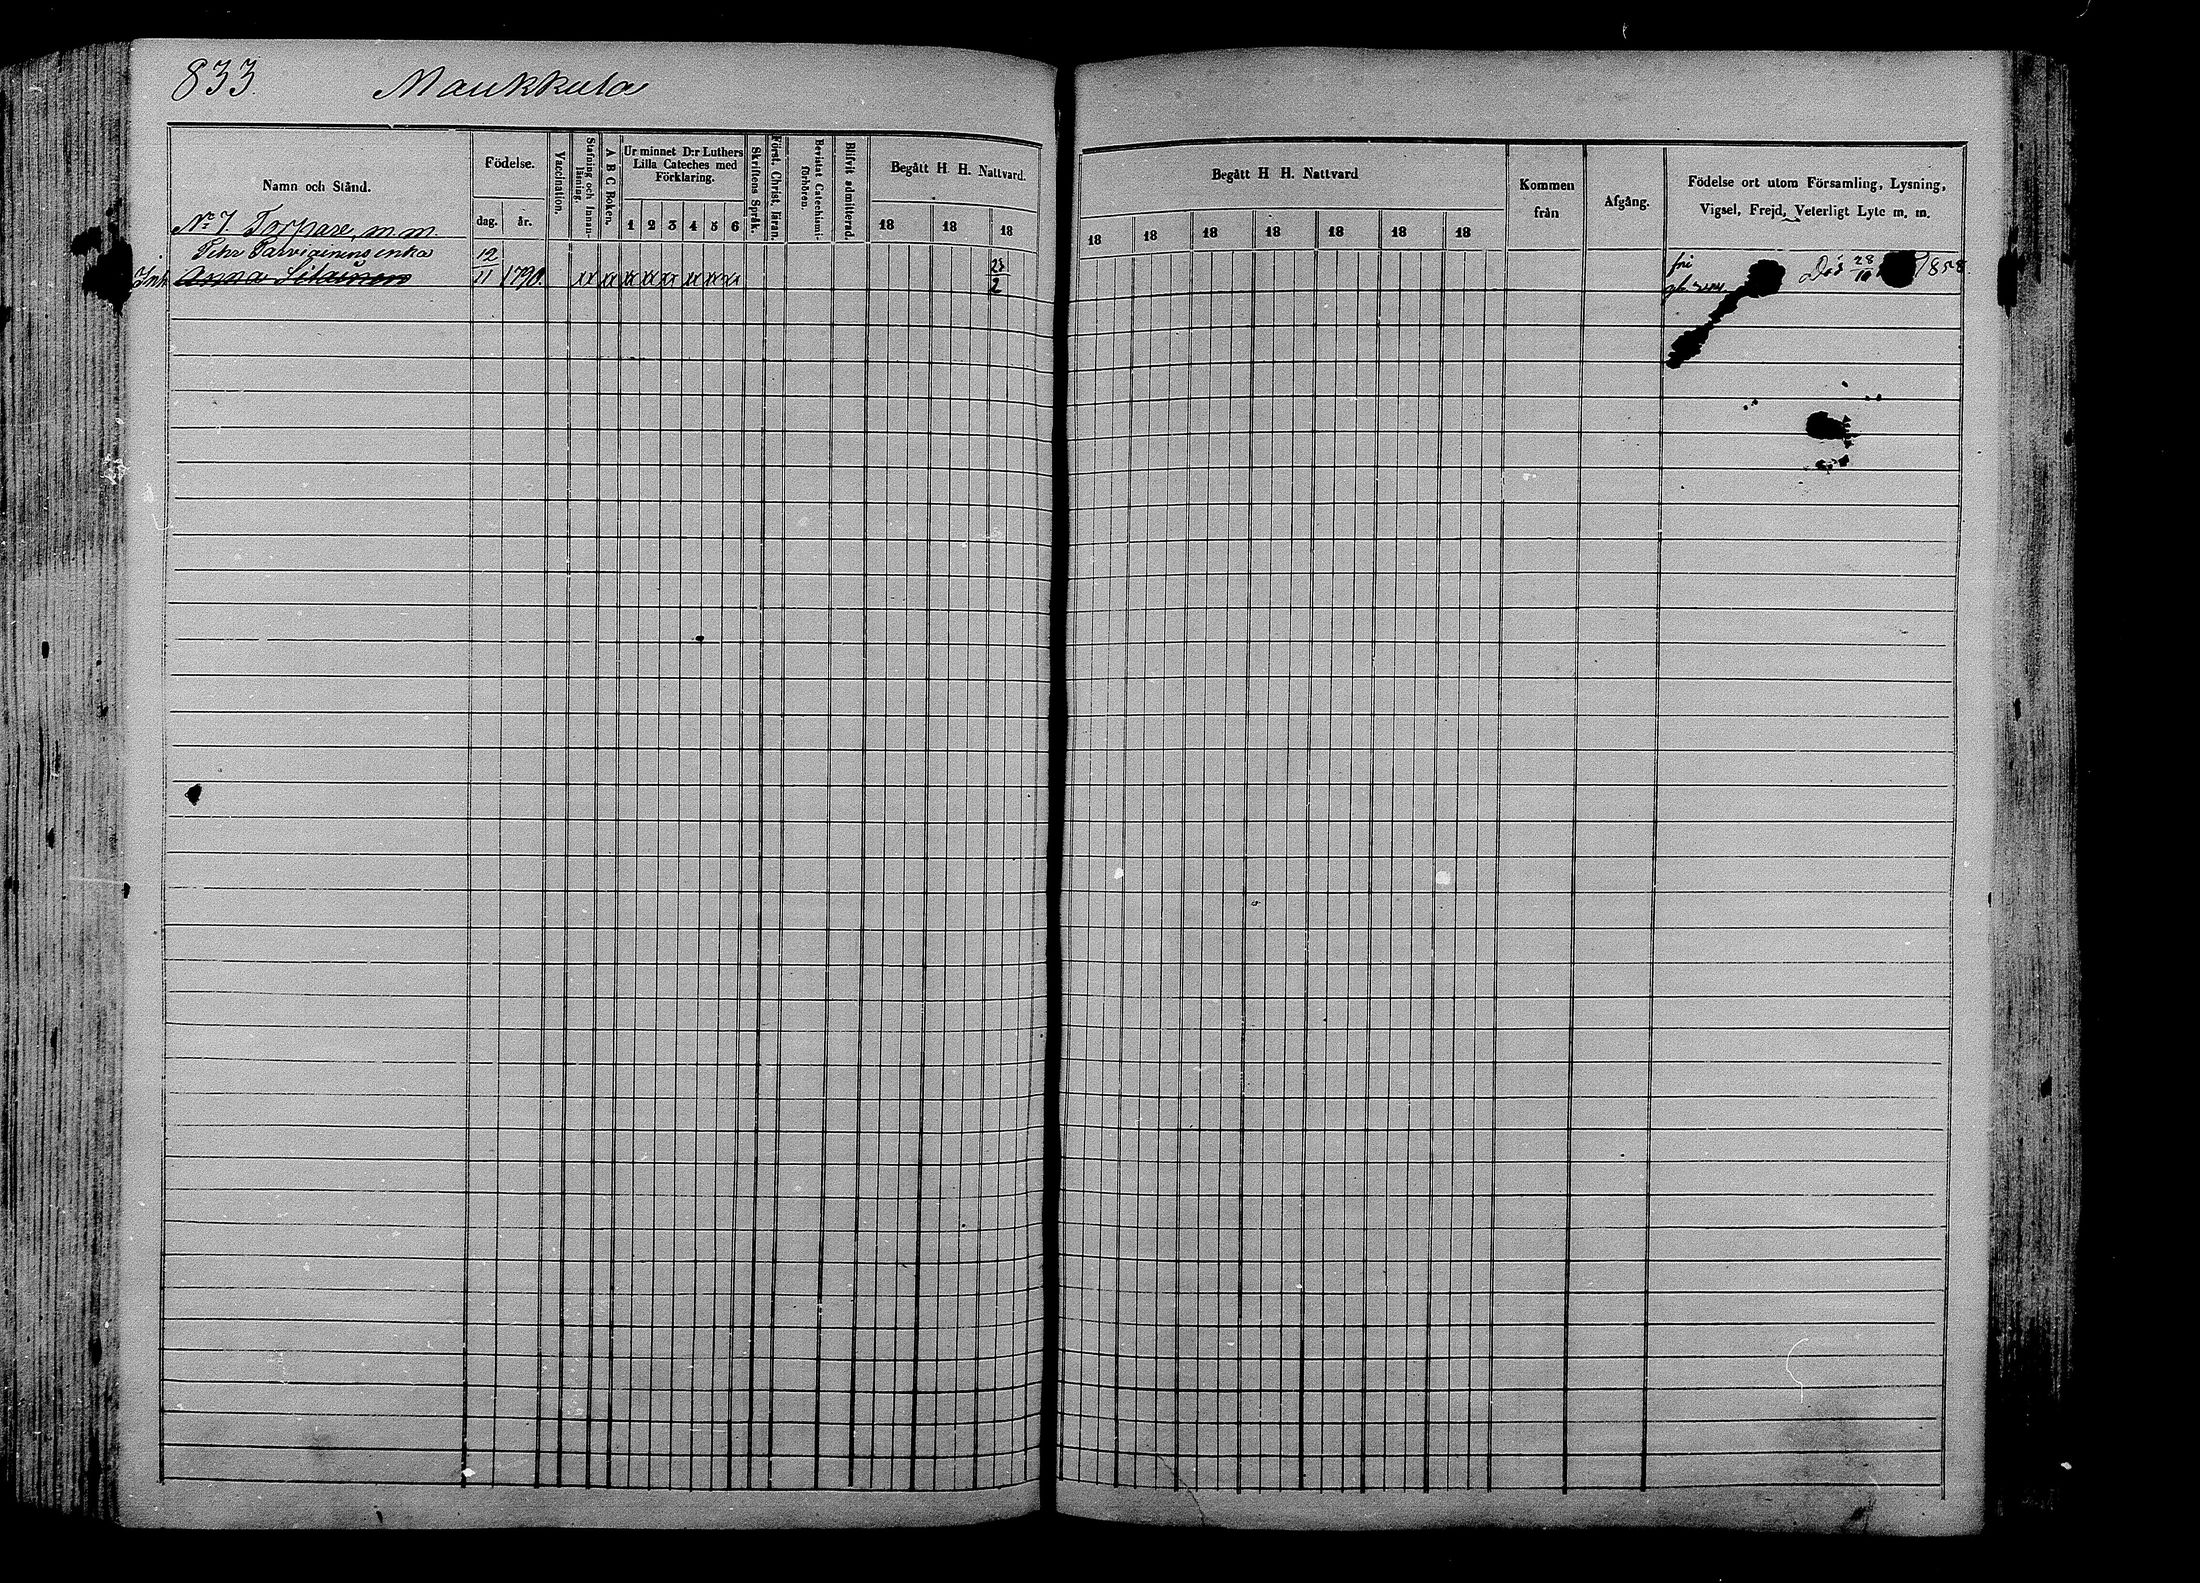 833. Maukkula
Namn och Stånd.
Födelse.
dag. år.
Vaccination.
Stafning och Innanläsning.
A B C Boken.
Ur minnet D:r Luthers
Lilla Cateches med
Förklaring.
1 2 3 4 5 6
Skriftens Språk.
Först. Christ. läran.
Bevistat Catechismiförhören.
Blifvit admitterad.
Begått H. H. Nattvard.
18 18 18
Begått H H. Nattvard
18 18 18 18 18 18 18
Kommen
från
Afgång.
Födelse ort utom Församling, Lysning,
Vigsel, Frejd, Veterligt Lyte m. m.
No 7. Torpare, m.m.
enka 12 23 fri Död 28 1858
Inh. Anna 11 1790. x x x x x x x x 2